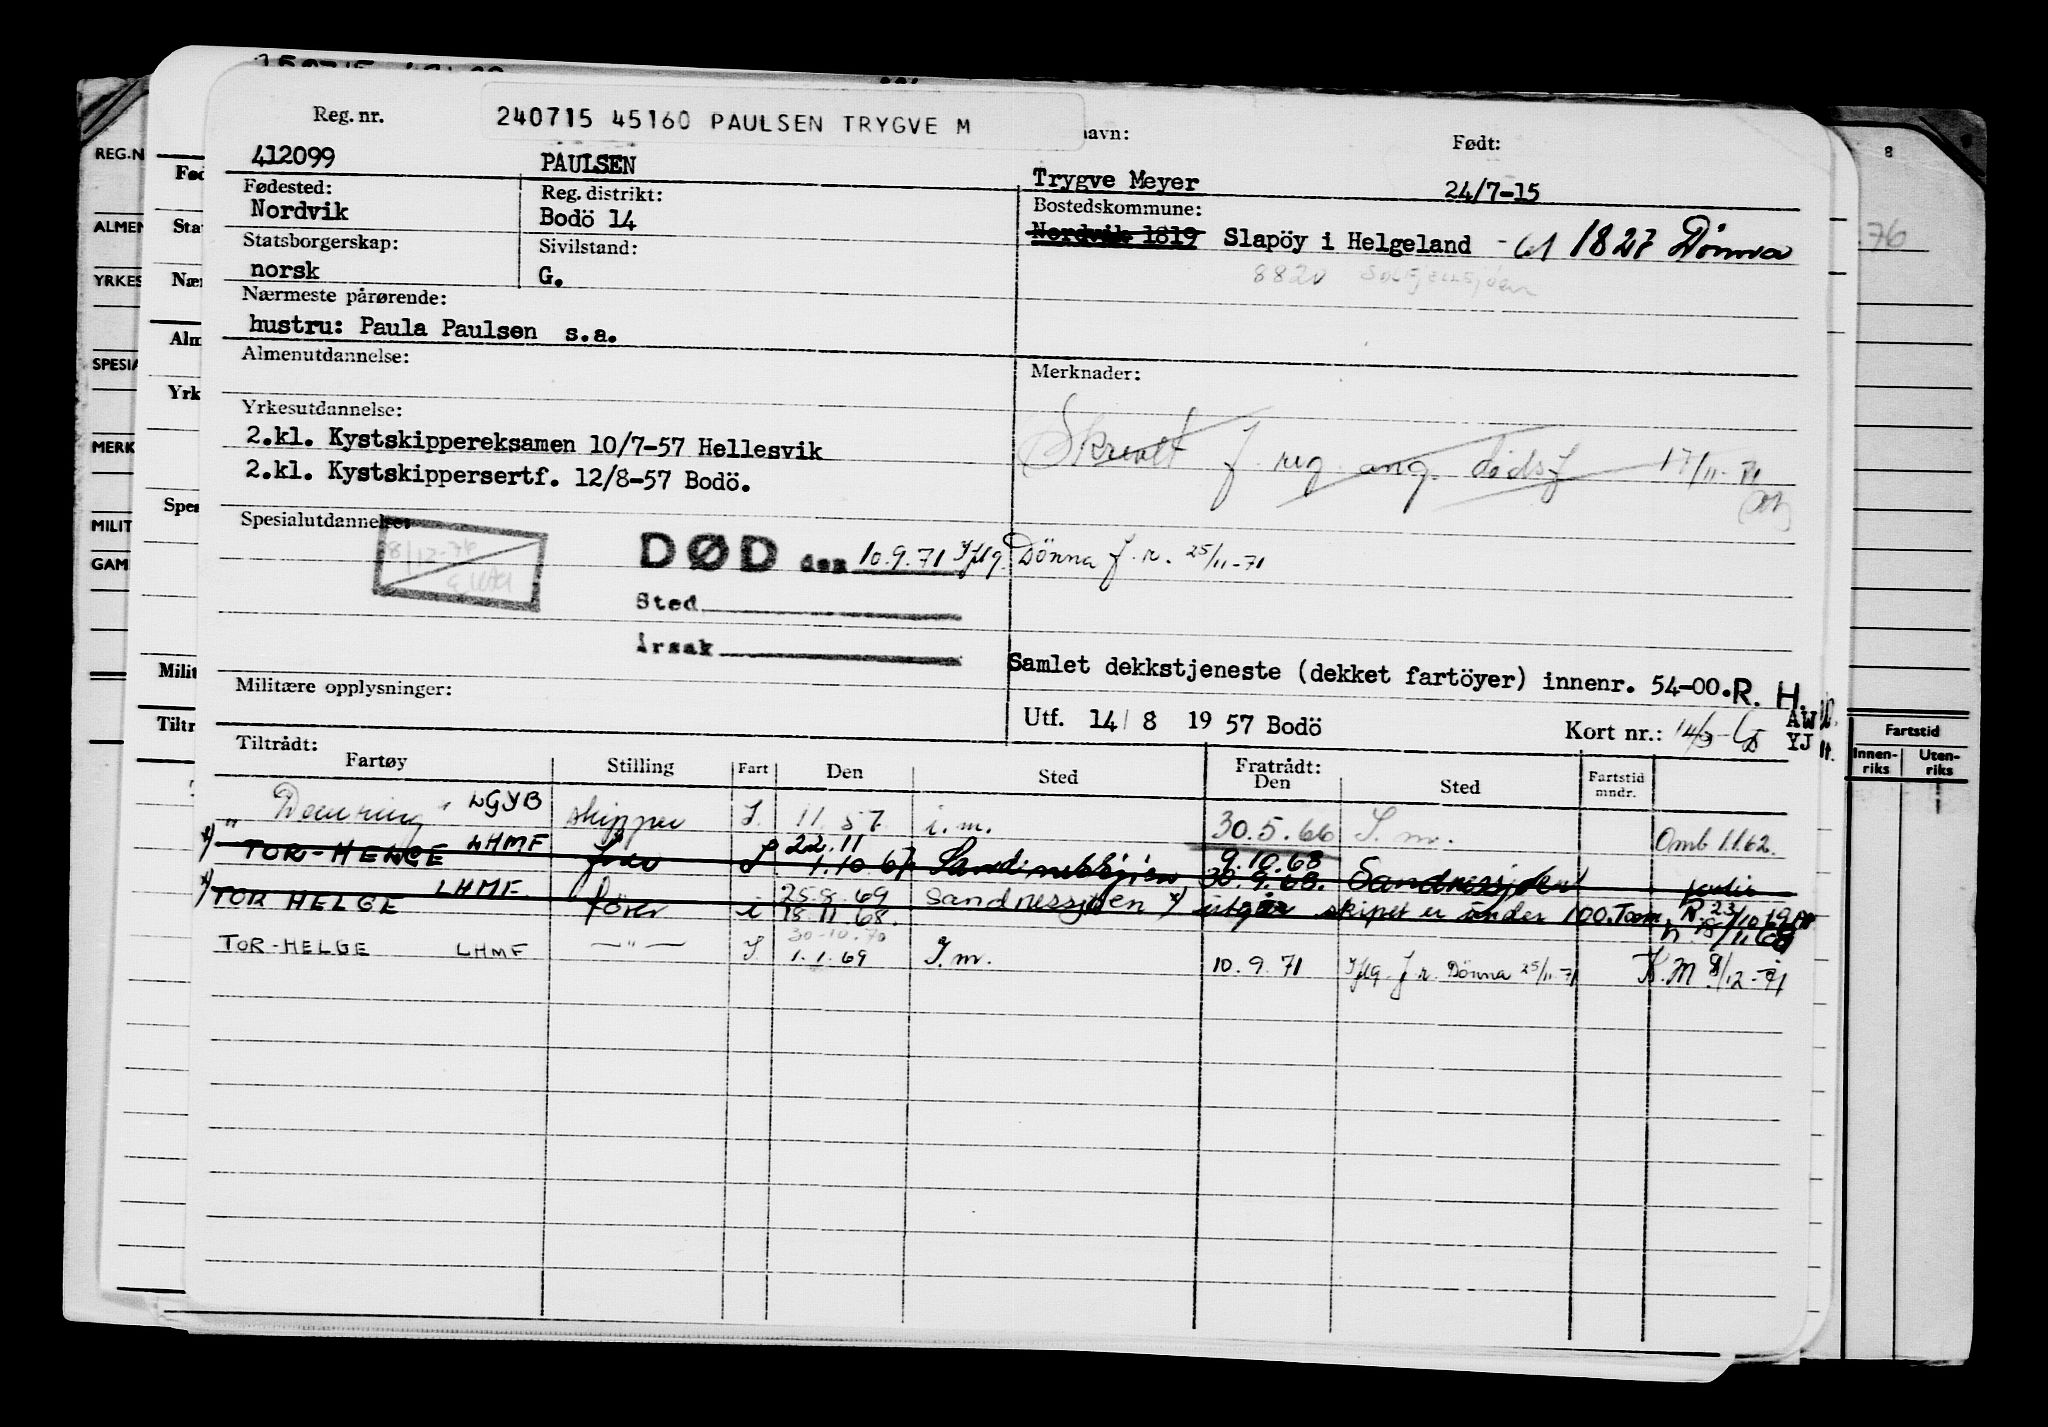 240715 45160 PAULSEN TRYGVE M
Reg. nr. navn: Født:
412099 PAULSEN Trygve Meyer 24/7-15
Fødested: Reg. distrikt: Bostedskommune:
Nordvik Bodö 14 Nordvik 1819 Slapöy i Helgeland - 61 1827 Dønna
8820
Statsborgerskap: Sivilstand:
norsk G.
Nærmeste pårørende:
hustru: Paula Paulsen s.a.
Almenutdannelse: Merknader:
Yrkesutdannelse:
2.kl. Kystskippereksamen 10/7-57 Hellesvik
2.kl. Kystskippersertf. 12/8-57 Bodö.
Skrevet f. reg. ang. dødsf 17/11-71
Spesialutdannelse:
DØD den 10.9.71 Iflg. Dönna f.r. 25/11-71
Sted
Årsak
Samlet dekkstjeneste (dekket fartöyer) innenr. 54-00. R. H.
Militære opplysninger:
Utf. 14/8 1957 Bodö Kort nr.: AW
YJ
Tiltrådt: Fratrådt:
Fartøy Stilling Fart Den Sted Den Sted Fartstid mndr.
LGYB skipper I. 11.57 i.m. 30.5.66 I.m. Omb 1.1.62.
*) TOR-HELGE LHMF fører I 22.11 1.10.67 Sandnessjøen 9.10.68 30.9.68. Sandnessjøen
*) TOR HELGE LHMF. fører i 25.8.69 18.11.68. Sandnessjøen *) utgår skipet er under 100. Tonn
30-10-70
TOR-HELGE LHMF —"— I. 1.1.69 I.m. 10.9.71 Iflg. f.r. Dönna 25/11-71 K.M 8/12-71
REG.N
ALMEN
YRKES
SPESIA
MERK
MILIT
GAM
Fød
Sta
Nær
Alm
Yrk
Spes
Milit
Tiltr
8
76
Fartstid
Innen-riks Uten-riks